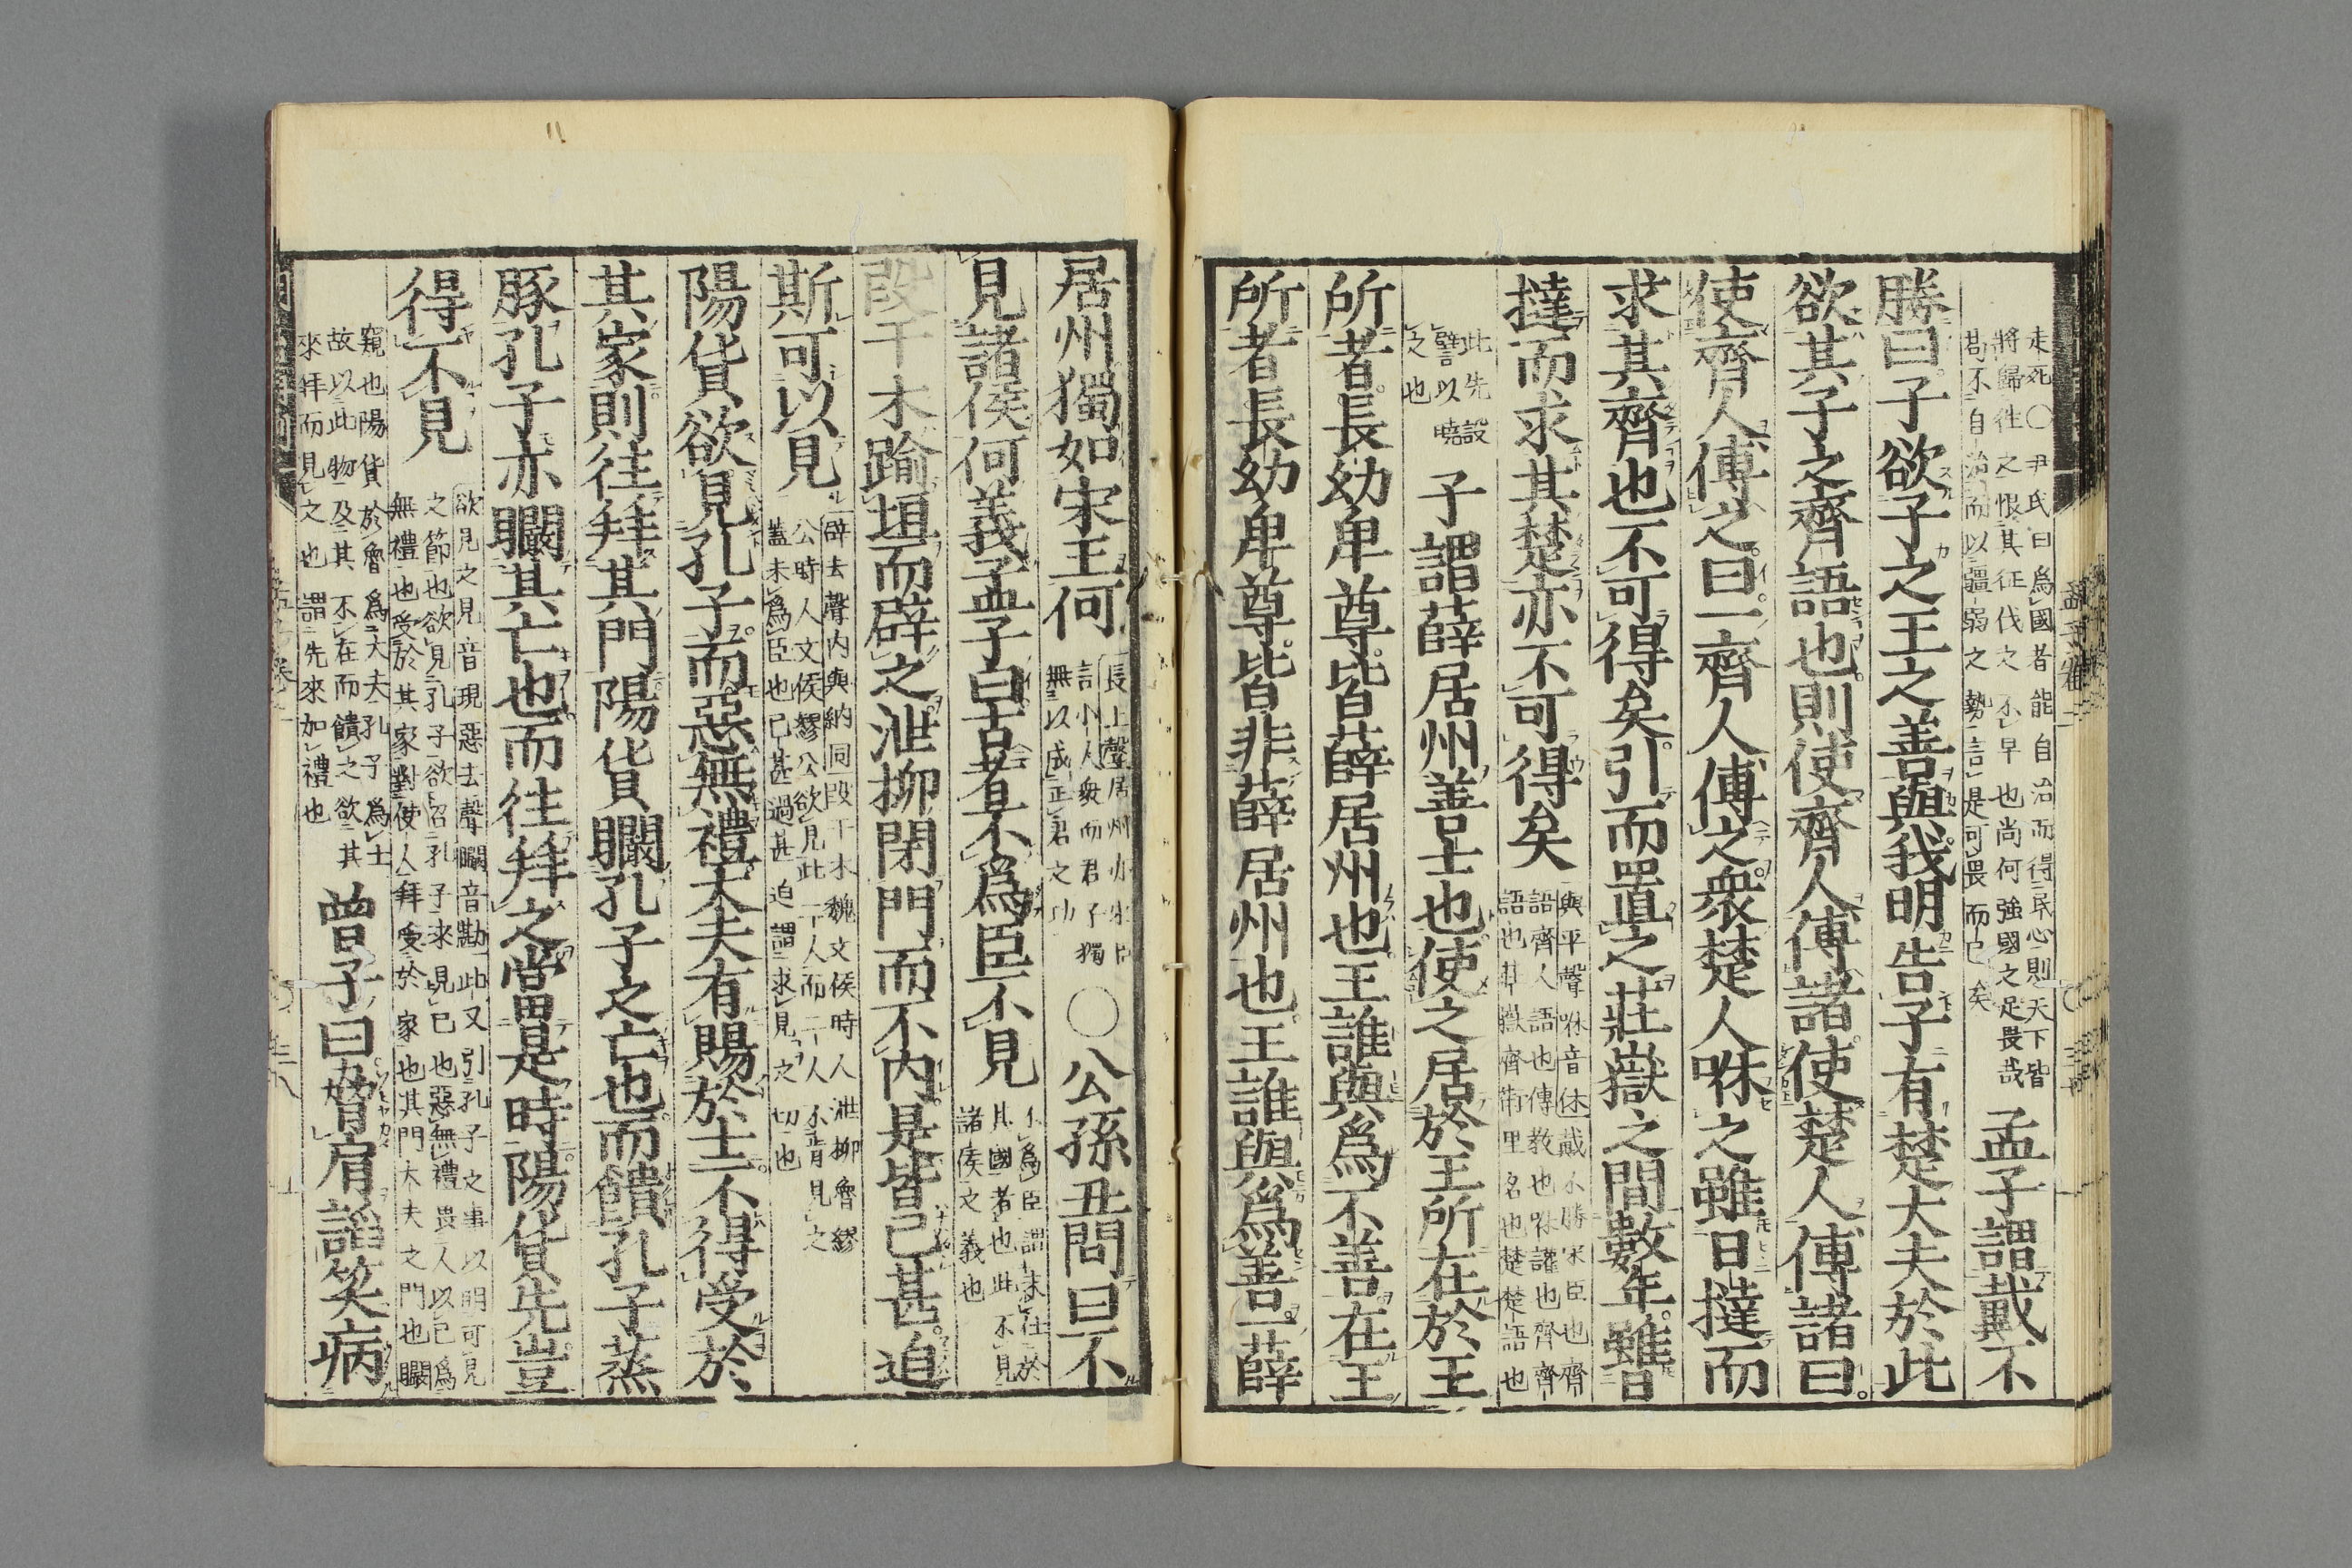 走死〇尹氏曰爲國者能自治而得民心則天下皆
將歸往之恨其征伐之不早也尚何強國之足畏哉
苟不自治而以彊弱之勢言是可畏而已矣
孟子謂戴不
勝曰子欲子之王之善與我明告子有楚大夫於此
欲其子之齊語也則使齊人傅諸使楚人傅諸曰
使齊人傅之曰一齊人傅之衆楚人咻之雖日撻而
求其齊也不可得矣引而置之莊嶽之間數年雖日
撻而求其楚亦不可得矣
與平聲咻音休戴不勝宋臣也齊
語齊人語也傅教也咻讙也齊齊
語也莊嶽齊街里名也楚楚語也
此先設
譬以曉
之也
子謂薛居州善士也使之居於王所在於王
所者長幼卑尊皆薛居州也王誰與爲不善在王
所者長幼卑尊皆非薛居州也王誰與爲善一薛
居州獨如宋王何
長上聲居州亦宋臣
言小人衆而君子獨
無以成正君之功
〇公孫丑問曰不
見諸侯何義孟子曰古者不爲臣不見
不爲臣謂未仕於
其國者也此不見
諸侯之義也
段干木踰垣而辟之泄柳閉門而不内是皆已甚迫
斯可以見
辟去聲内與納同段干木魏文侯時人泄柳魯繆
公時人文侯繆公欲見此二人而二人不肯見之
蓋未爲臣也已甚過甚迫謂求見之切也
陽貨欲見孔子而惡無禮大夫有賜於士不得受於
其家則往拜其門陽貨矙孔子之亡也而饋孔子蒸
豚孔子亦矙其亡也而往拜之當是時陽貨先豈
得不見
欲見之見音現惡去聲矙音勘此又引孔子之事以明可見
之節也欲見孔子欲召孔子來見已也惡無禮畏人以已爲
無禮也受於其家對使人拜受於家也其門大夫之門也矙
窺也陽貨於魯爲大夫孔子爲士
故以此物及其不在而饋之欲其
來拜而見之也謂先來加禮也
曾子曰脅肩諂笑病